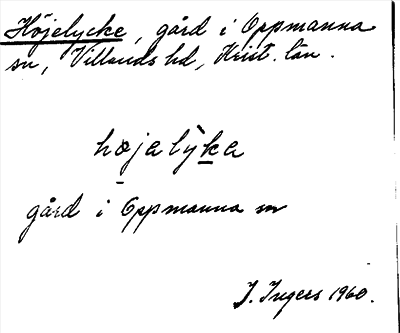 Höjelycke, gård i Oppmanna
sn, Villands hd, Krist. län.
højalỳka
gård i Oppmanna sn
I. Ingers 1960.